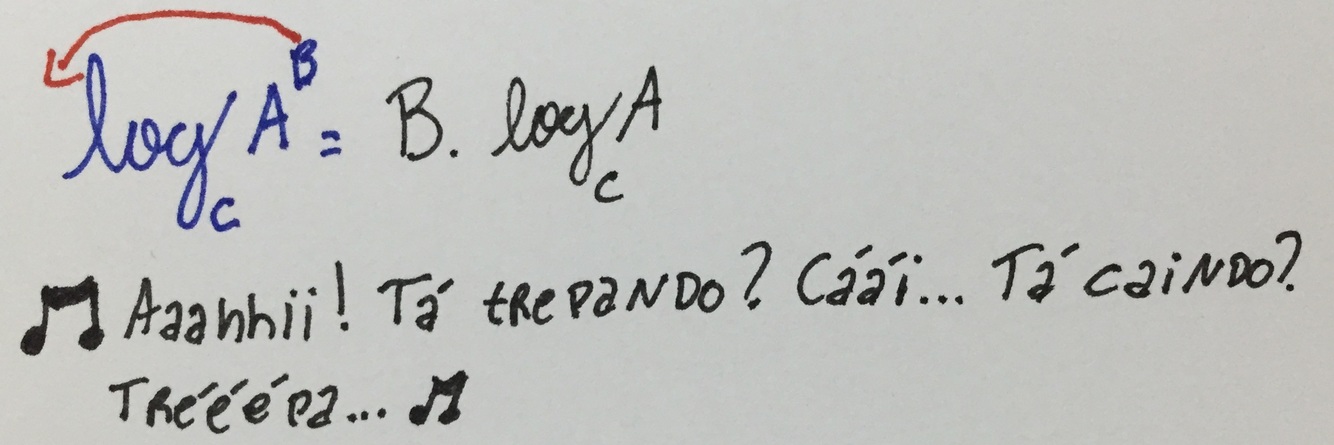 log_C A^B = B. log_C A
♫ Aaahhii! Tá trepando? Cáái... Tá caindo?
Trééépa... ♫